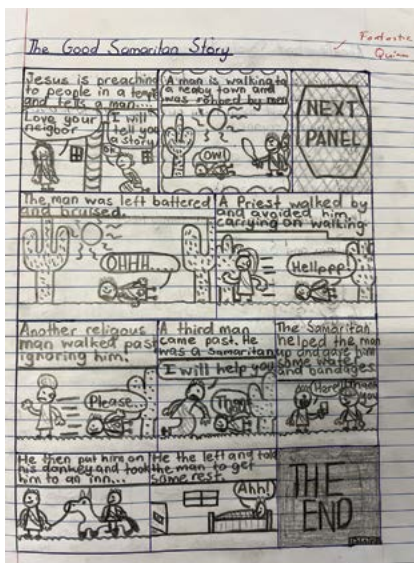 The Good Samaritan Story
Fantastic
Quinn
Jesus is preaching
to people in a temple
and tells a man...
Love your
neigbor
I will
tell you
a story
OK
A man is walking to
a nearby town and
was robbed by men
Ow!
NEXT
PANEL
The man was left battered
and bruised.
OHHH
A Priest walked by
and avoided him,
carrying on walking.
Hellppp!
Another religous
man walked past
ignoring him!
Please
A third man
came past. He
was a Samaritan
I will help you
Thank
The Samaritan
helped the man
up and gave him
some water
and bandages
Here!
Thank
you
He then put him on
his donkey and took
him to an inn...
He the left and told
the man to get
some rest.
Ahh!
THE
END